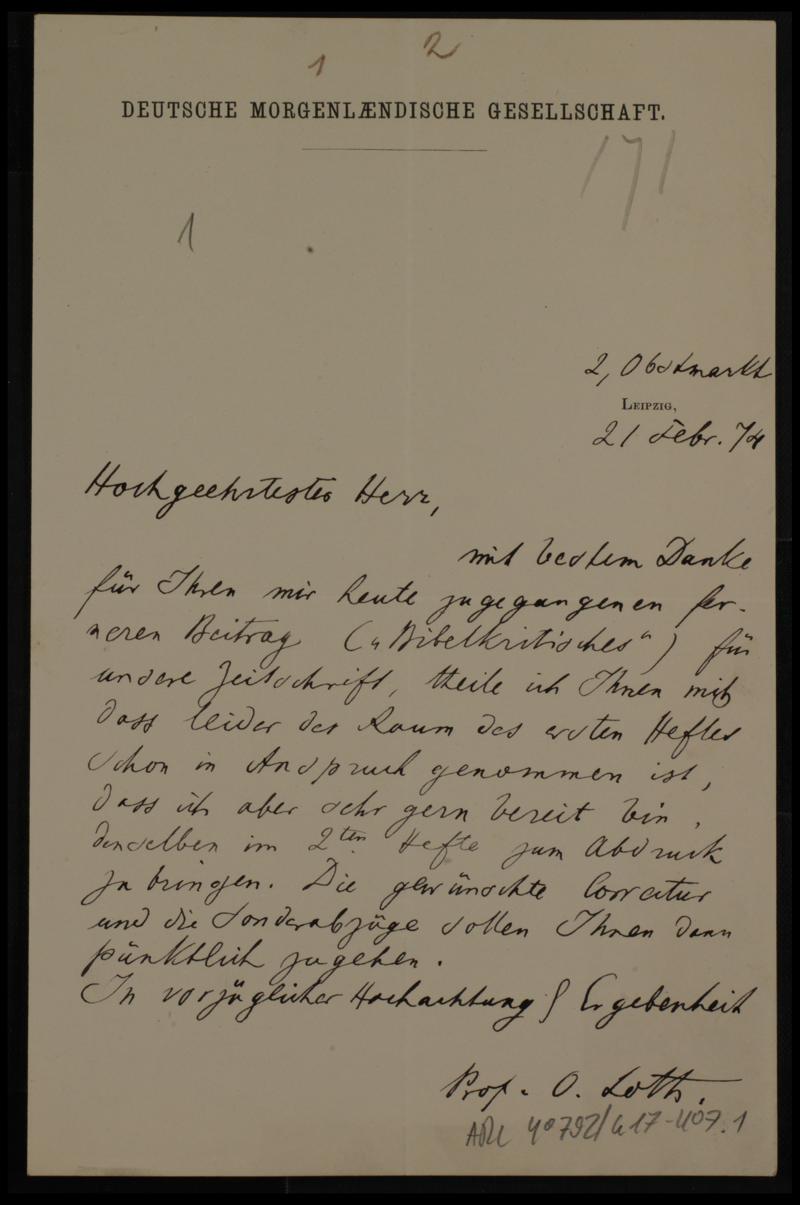 1 2
DEUTSCHE MORGENLÆNDISCHE GESELLSCHAFT.
171
1
2, Obstmarkt
LEIPZIG,
21 Febr. 74
Hochgeehrtester Herr,
mit bestem Danke
für Ihren mir heute zugegangenen fer-
neren Beitrag („Bibelkritisches“) für
unsere Zeitschrift, theile ich Ihnen mit
dass leider der Raum des ersten Heftes
schon in Anspruch genommen ist,
dass ich aber sehr gern bereit bin,
denselben im 2ten Hefte zum Abdruck
zu bringen. Die gewünschte Correctur
und die Sonderabzüge sollen Ihnen dann
pünktlich zugehen.
In vorzüglicher Hochachtung & Ergebenheit
Prof. O. Loth.
40792/